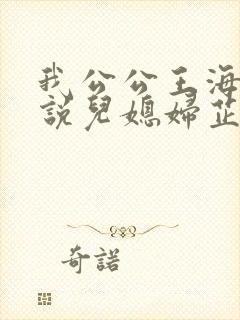 我公公王海
說兒媳婦芷
奇諾